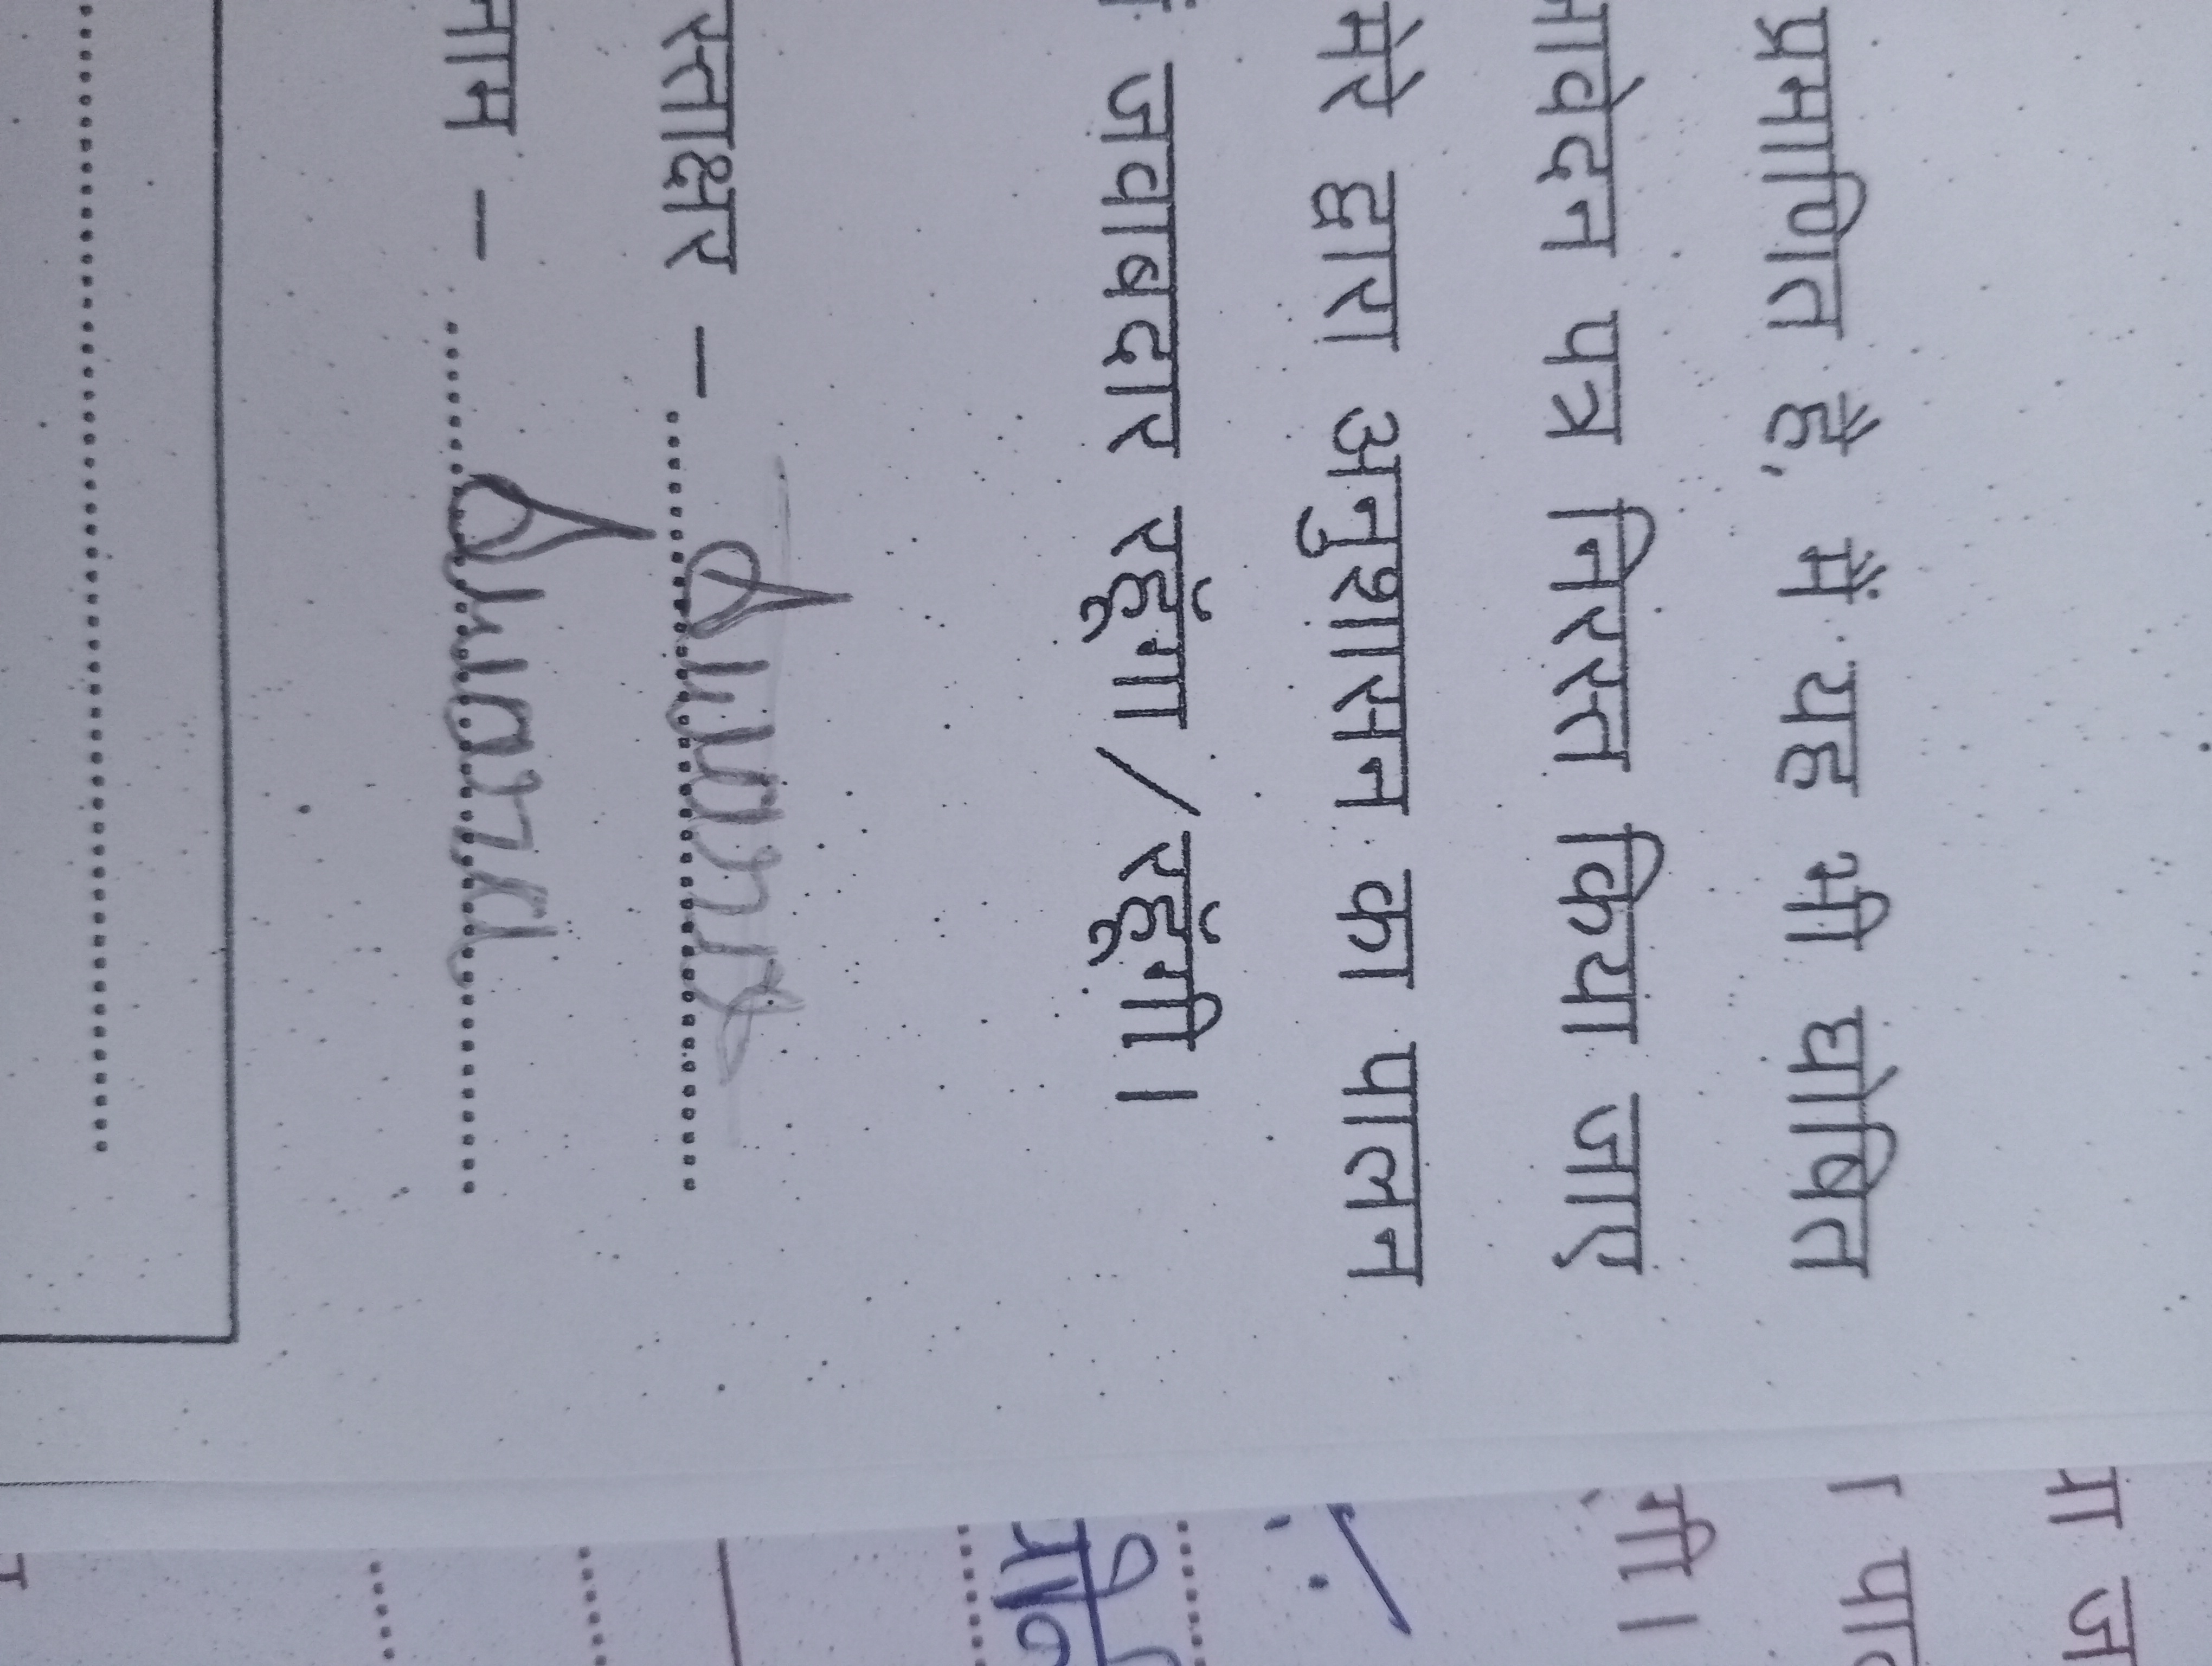 प्रमाणित है, मैं यह भी घोषित
आवेदन पत्र निरस्त किया जाए
मेरे द्वारा अनुशासन का पालन
जवाबदार रहूँगा / रहूँगी।
स्ताक्षर – ..........
नाम – ..........
..........
या ज
। पाल
गी।